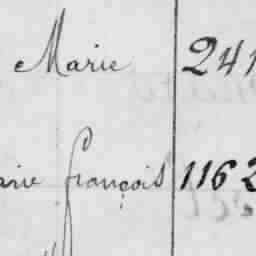 Marie 241
arie françois 1162